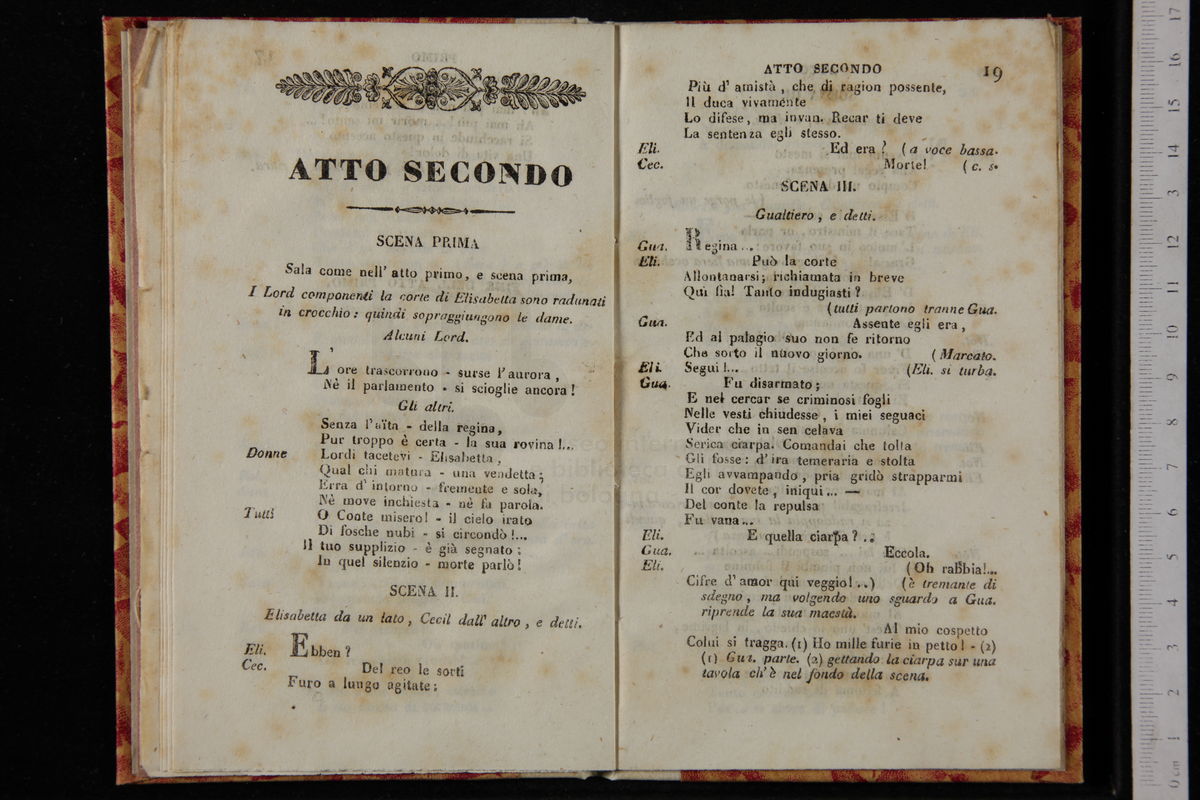 ATTO SECONDO
SCENA PRIMA
Sala come nell' atto primo, e scena prima,
I Lord componenti la corte di Elisabetta sono radunati
in crocchio: quindi sopraggiungono le dame.
Alcuni Lord.
L' ore trascorrono - surse l'aurora,
Nè il parlamento - si scioglie ancora!
Gli altri.
Senza l'aïta - della regina,
Pur troppo è certa - la sua rovina!...
Donne Lordi tacetevi - Elisabetta,
Qual chi matura - una vendetta;
Erra d' intorno - fremente e sola,
Nè move inchiesta - nè fa parola.
Tutti O Conte misero! - il cielo irato
Di fosche nubi - si circondò!...
Il tuo supplizio - è già segnato:
In quel silenzio - morte parlò!
SCENA II.
Elisabetta da un lato, Cecil dall' altro, e detti.
Eli. Ebben?
Cec. Del reo le sorti
Furo a lungo agitate;
ATTO SECONDO 19
Più d' amistà, che di ragion possente,
Il duca vivamente
Lo difese, ma invan. Recar ti deve
La sentenza egli stesso.
Eli. Ed era? (a voce bassa.
Cec. Morte! (c. s.
SCENA III.
Gualtiero, e detti.
Gua. Regina...
Eli. Può la corte
Allontanarsi; richiamata in breve
Quì fia! Tanto indugiasti?
(tutti partono tranne Gua.
Gua. Assente egli era,
Ed al palagio suo non fe ritorno
Che sorto il nuovo giorno. (Marcato.
Eli. Segui!... (Eli. si turba.
Gua. Fu disarmato;
E nel cercar se criminosi fogli
Nelle vesti chiudesse, i miei seguaci
Vider che in sen celava
Serica ciarpa. Comandai che tolta
Gli fosse: d' ira temeraria e stolta
Egli avvampando, pria gridò strapparmi
Il cor dovete, iniqui... —
Del conte la repulsa
Fu vana...
Eli. E quella ciarpa?...
Gua. Eccola.
Eli. (Oh rabbia!...
Cifre d' amor qui veggio!...) (è tremante di
sdegno, ma volgendo uno sguardo a Gua.
riprende la sua maestà.
Al mio cospetto
Colui si tragga. (1) Ho mille furie in petto! - (2)
(1) Gua. parte. (2) gettando la ciarpa sur una
tavola ch' è nel fondo della scena.